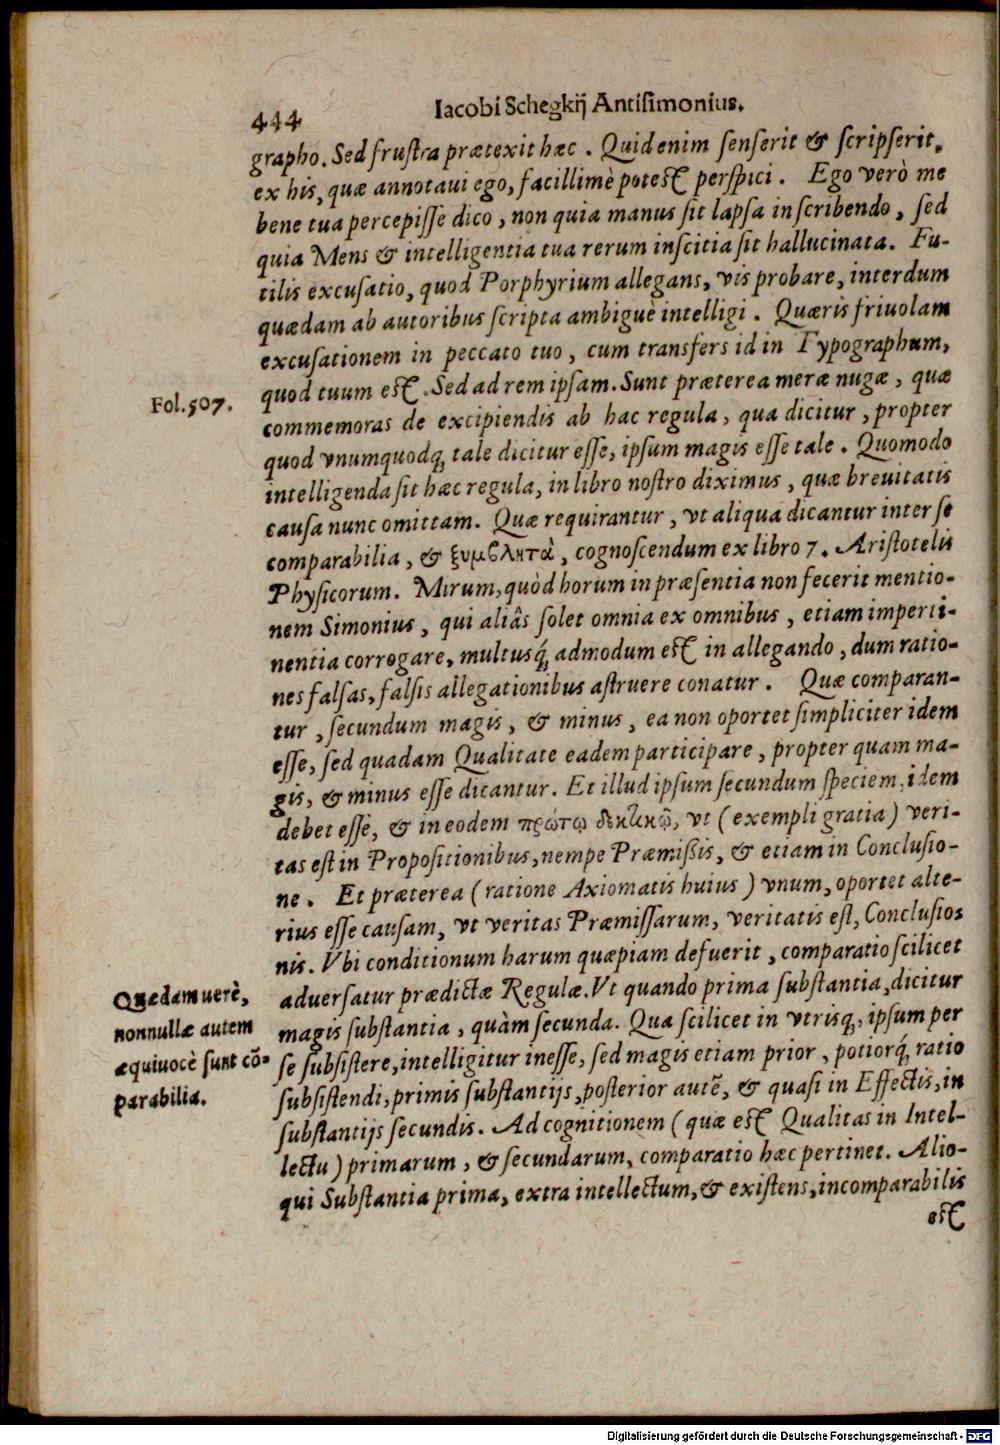 444
Iacobi Schegkij Antisimonius.
grapho. Sed frustra prætexit hæc. Quid enim senserit & scripserit,
ex his, quæ annotaui ego, facillimè potest perspici. Ego verò me
bene tua percepisse dico, non quia manus sit lapsa in scribendo, sed
quia Mens & intelligentia tua rerum inscitia sit hallucinata. Fu-
tilis excusatio, quod Porphyrium allegans, vis probare, interdum
quædam ab autoribus scripta ambiguè intelligi. Quæris friuolam
excusationem in peccato tuo, cum transfers id in Typographum,
quod tuum est. Sed ad rem ipsam. Sunt præterea meræ nugæ, quæ
Fol. 507.
commemoras de excipiendis ab hac regula, qua dicitur, propter
quod vnumquodq; tale dicitur esse, ipsum magis esse tale. Quomodo
intelligenda sit hæc regula, in libro nostro diximus, quæ breuitatis
causa nunc omittam. Quæ requirantur, vt aliqua dicantur inter se
comparabilia, & ξυμβλητὰ, cognoscendum ex libro 7. Aristotelis
Physicorum. Mirum, quòd horum in præsentia non fecerit mentio-
nem Simonius, qui aliâs solet omnia ex omnibus, etiam imperti-
nentia corrogare, multusq́; admodum est in allegando, dum ratio-
nes falsas, falsis allegationibus astruere conatur. Quæ comparan-
tur, secundum magis, & minus, ea non oportet simpliciter idem
esse, sed quadam Qualitate eadem participare, propter quam ma-
gis, & minus esse dicantur. Et illud ipsum secundum speciem, idem
debet esse, & in eodem πρώτῳ δεκτικῷ, vt (exempli gratia) veri-
tas est in Propositionibus, nempe Præmißis, & etiam in Conclusio-
ne. Et præterea (ratione Axiomatis huius) vnum, oportet alte-
rius esse causam, vt veritas Præmissarum, veritatis est, Conclusio-
nis. Vbi conditionum harum quæpiam defuerit, comparatio scilicet
Quædam uerè,
nonnullæ autem
æquiuocè sunt cō-
parabilia.
aduersatur prædictæ Regulæ. Vt quando prima substantia, dicitur
magis substantia, quàm secunda. Qua scilicet in vtrisq; ipsum per
se subsistere, intelligitur inesse, sed magis etiam prior, potiorq́; ratio
subsistendi, primis substantijs, posterior autē, & quasi in Effectis, in
substantijs secundis. Ad cognitionem (quæ est Qualitas in Intel-
lectu) primarum, & secundarum, comparatio hæc pertinet. Alio-
qui Substantia prima, extra intellectum, & existens, incomparabilis
est
Digitalisierung gefördert durch die Deutsche Forschungsgemeinschaft - DFG